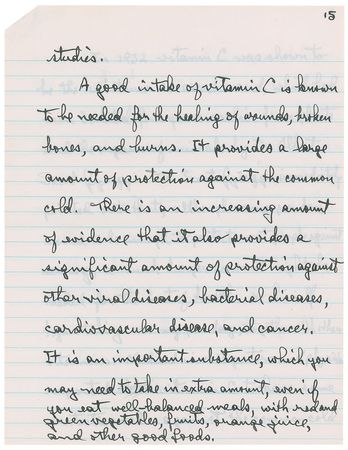 15
studies.
A good intake of vitamin C is known
to be needed for the healing of wounds, broken
bones, and burns. It provides a large
amount of protection against the common
cold. There is an increasing amount
of evidence that it also provides a
significant amount of protection against
other viral diseases, bacterial diseases,
cardiovascular disease, and cancer.
It is an important substance, which you
may need to take in extra amount, even if
you eat well-balanced meals, with red and
green vegetables, fruits, orange juice,
and other good foods.